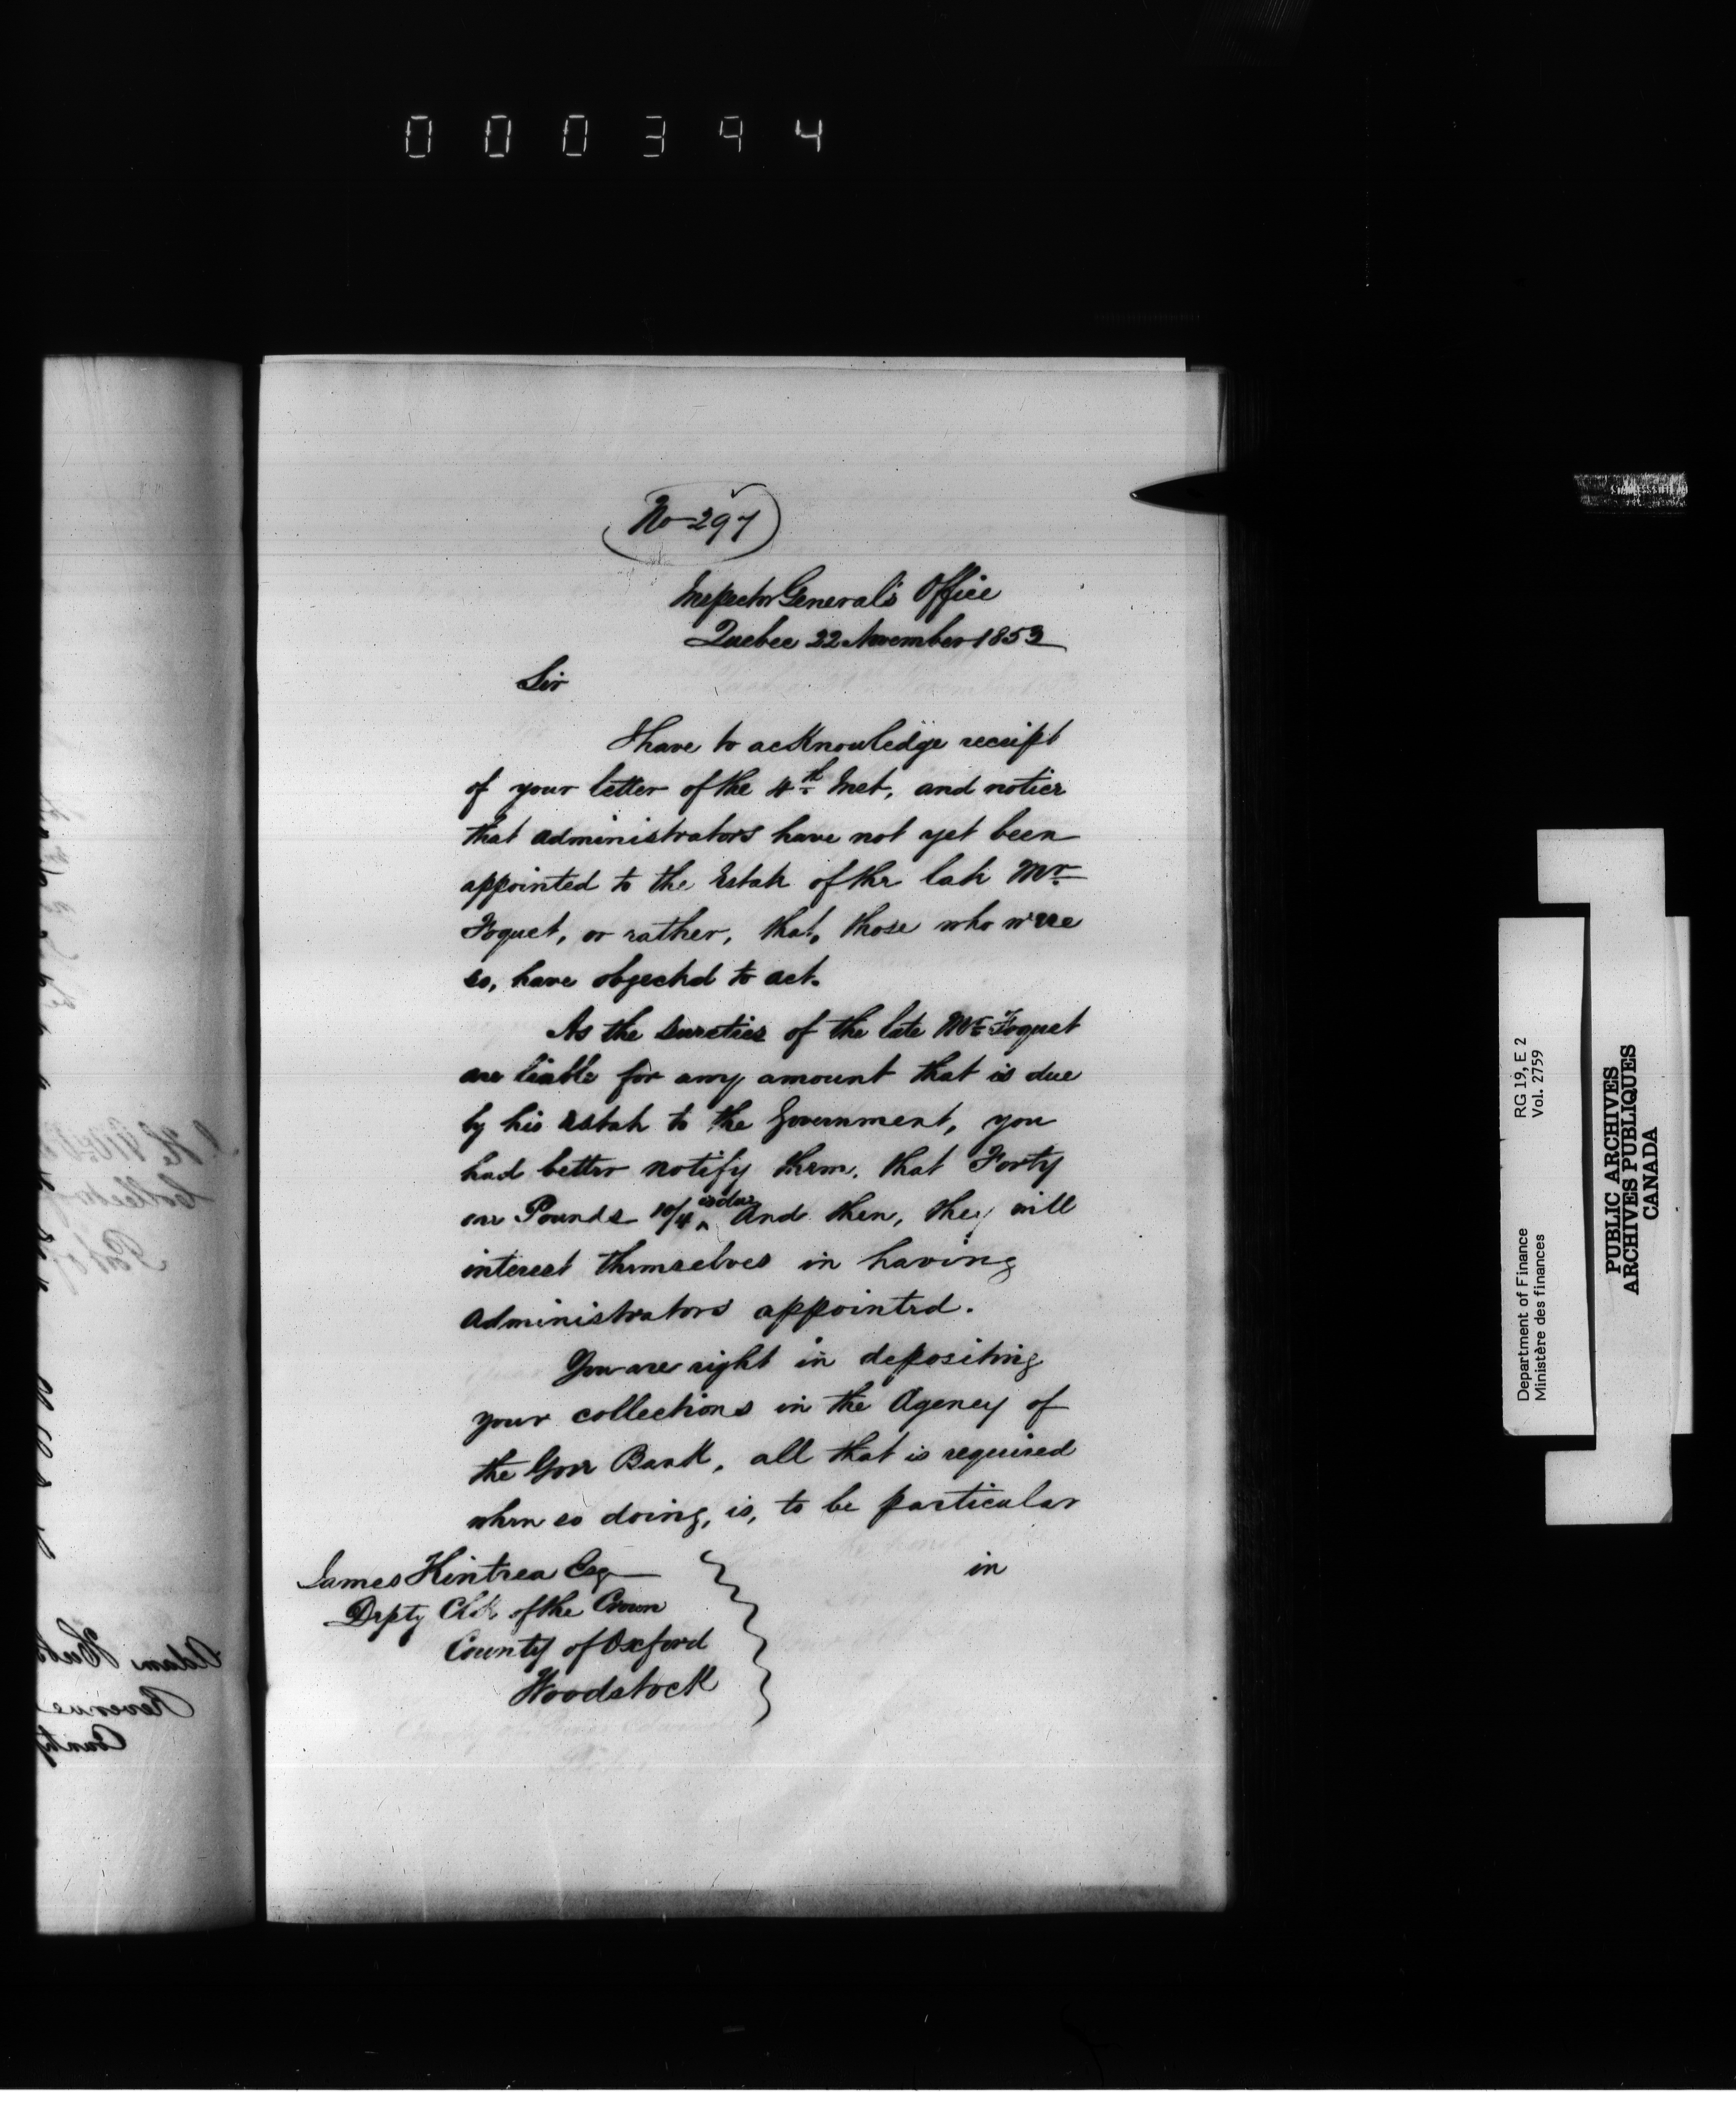 000394
No 297
Inspector General's Office
Quebec 22 November 1853
Sir
I have to acknowledge receipt
of your letter of the 4th Inst, and notice
that administrators have not yet been
appointed to the Estate of the late Mr
Foquet, or rather, that, those who were
so, have objected to act.
As the sureties of the late Mr Foquet
are liable for any amount that is due
by his estate to the Government, you
had better notify them, that Forty
one Pounds 10/4 is due And then, they will
interest themselves in having
administrators appointed.
You are right in depositing
your collections in the Agency of
the Gore Bank, all that is required
when so doing, is, to be particular
in
James Kintrea Esq
Depty Clk of the Crown
County of Oxford
Woodstock
Department of Finance RG 19, E 2
Ministère des finances Vol. 2759
PUBLIC ARCHIVES
ARCHIVES PUBLIQUES
CANADA